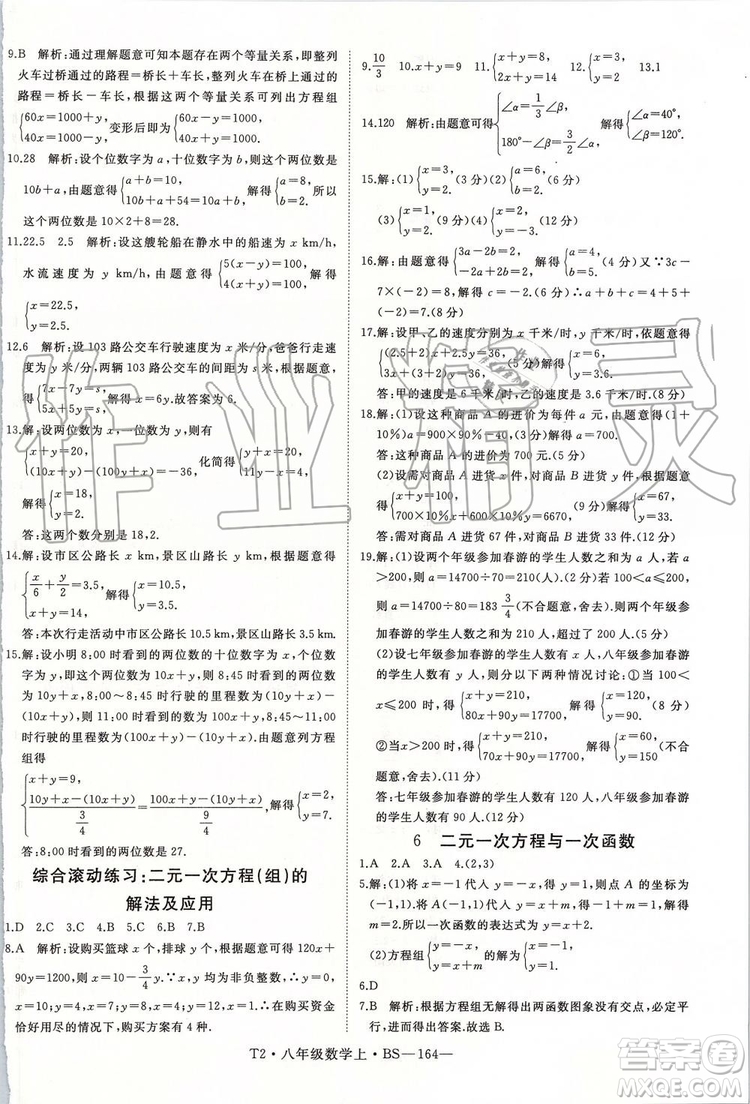 9.B 解析:通过理解题意可知本题存在两个等量关系,即整列
火车过桥通过的路程=桥长+车长,整列火车在桥上通过的
路程=桥长-车长,根据这两个等量关系可列出方程组
{60x=1000+y, 40x=1000-y 变形后即为{60x-y=1000, 40x+y=1000.
10.28 解析:设个位数字为 a,十位数字为 b,则这个两位数是
10b+a,由题意得{a+b=10, 10b+a=10a+b-... 解得{a=8, b=2. 所以
这个两位数为 10×2+8=28.
11.22.5 2.5 解析:设这艘轮船在静水中的船速为 x km/h,
水流速度为 y km/h,由题意得{5(x-y)=100, 4(x+y)=100, 解得
{x=22.5, y=2.5.
12.6 解析:设 103 路公交车行驶速度为 x 米/分,爸爸行走速
度为 y 米/分,两辆 103 路公交车的间距为 s 米,根据题意得
{7x-7y=s, 5x+5y=s, 解得 s=6x.故答案为 6.
13.解:设两位数为 x,一位数为 y,则有
{x+y=20, (10x+y)-(100y+x)=-36, 化简得{x+y=20, x-11y=-4,
解得{x=18, y=2.
答:这两个数分别为 18,2.
14.解:设市区公路长 x km,景区山路长 y km.根据题意得
{x/6+y/2=3.5, 解得{x=10.5, y=3.5.
答:本次行走活动中市区公路长 10.5 km,景区山路长 3.5 km.
15.解:设小明 8:00 时看到的两位数的十位数字为 x,个位数
字为 y,即为 10x+y,8:00~8:45 行驶的里程数为
(10y+x)-(10x+y),8:45~9:30 行驶的里程数为
(100x+y)-(10y+x),由题意列方程
组得
{x+y=9, (10y+x-(10x+y))/(3/4)=(100x+y-(10y+x))/(3/4), 解得{x=2, y=7.
答:8:00 时看到的两位数是 27.
综合滚动练习:二元一次方程(组)的
解法及应用
1.D 2.C 3.C 4.D 5.B 6.B 7.B
8.A 解析:设购买篮球 x 个,排球 y 个,根据题意可得 120x+
90y=1200,则 y=(40-4x)/3.∵x,y 均为非负整数,∴
x=10,y=0;x=7,y=4;x=4,y=8;x=1,y=12.∴在购买资金
恰好用尽的情况下,购买方案有 4 种.
9.10/3 10.{x+y=-1, x-y=3 11.{x+y=7, 2x=14 12.{x+y=36, 13.1
14.120 解析:由题意可得{∠α=1/3∠β, 180°-∠β=∠α+20°, 解得{∠α=40°, ∠β=120°.
15.解:(1){x=6, y=4.(3分) (2){x=5, (6分)
(3){x=2, (9分) (4){x=1, (12分)
16.解:由题意得{3a-2b=2, -2a+2b=2, 解得{a=4, b=5.(4分)又∵3c-
7×(-2)=8,解得 c=-2.(6分)∴a+b+c=4+5+
(-2)=7.(8分)
17.解:设甲、乙的速度分别为 x 千米/时,y 千米/时,依题意得
{(2.5+2)x+2.5y=36, 3x+(2+3)y=36, 解得{x=6, y=3.6.
答:甲的速度为 6 千米/时,乙的速度为 3.6 千米/时.(8分)
18.解:(1)设这种商品 A 的进价为每件 a 元,由题意得(1+
10%)a=900×90%-40,解得 a=700.
答:这种商品 A 的进价为 700 元.(5分)
(2)设需对商品 A 进货 x 件,对商品 B 进货 y 件,根据题意
得{x+y=100, 700×10%x+600×10%y=6670, 解得{x=67, y=33.
答:需对商品 A 进货 67 件,对商品 B 进货 33 件.(12分)
19.解:(1)设两个年级参加春游的学生人数之和为 a 人,若 a>
200,则 a=14700÷70=210(人).(3分)若 100<a≤
200,则 a=14700÷80=183 3/4(不合题意,舍去).则两个年级参
加春游的学生人数之和等于 210 人,超过 200 人.(5分)
(2)设七年级参加春游的学生人数有 x 人,八年级参加春游
的学生人数有 y 人,则分以下两种情况讨论:①当 100<
x≤200 时,得{x+y=210, 80x+90y=17700, 解得{x=120, y=90.(8分)
②当 x>200 时,得{x+y=210, 70x+90y=17700, 解得{(不合题意,舍去).
答:七年级参加春游的学生人数有 120 人,八年级参加春游
的学生人数有 90 人.(12分)
6 二元一次方程与一次函数
1.A 2.A 3.A 4.(2,3)
5.解:(1)将 x=-1 代入 y=-x+1,得 y=1+1=2.将 x=
-1,y=2 代入 y=mx+4,得 2=-m+4,解得
m=2.所以一次函数的表达式为 y=2x+4.
(2)方程组{x+y=1, 的解为{x=-1, y=2.
6.D
7.B 解析:根据方程组无解得出两函数图象没有交点,必定平
行,由此可作出选择.故选 B.
T2·八年级数学上·BS—164—
作业精灵
答案圈
MXQE.COM